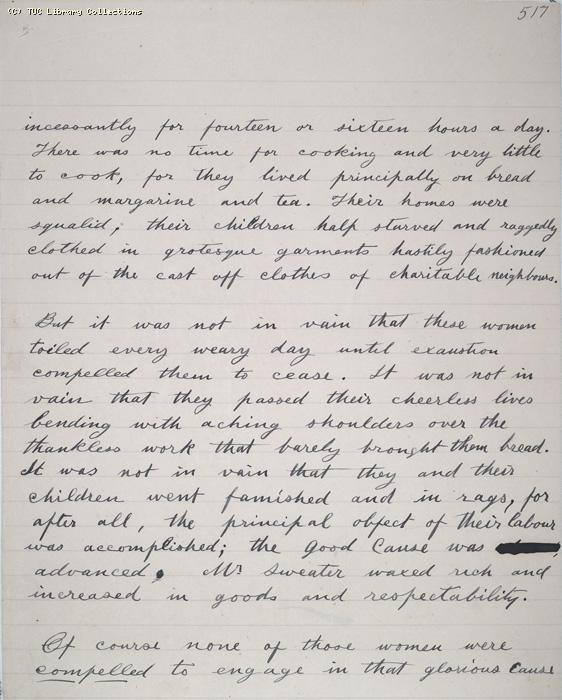 (C) TUC Library Collections
517
incessantly for fourteen or sixteen hours a day.
There was no time for cooking and very little
to cook, for they lived principally on bread
and margarine and tea. Their homes were
squalid, their children half starved and raggedly
clothed in grotesque garments hastily fashioned
out of the cast off clothes of charitable neighbours.
But it was not in vain that these women
toiled every weary day until exaustion
compelled them to cease. It was not in
vain that they passed their cheerless lives
bending with aching shoulders over the
thankless work that barely brought them bread.
It was not in vain that they and their
children went famished and in rags, for
after all, the principal object of their labour
was accomplished; the Good Cause was
advanced. Mr Sweater waxed rich and
increased in goods and respectability.
Of course none of those women were
compelled to engage in that glorious Cause